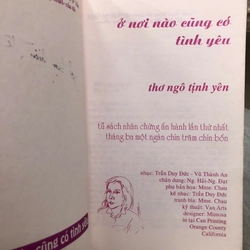 ở nơi nào cũng có
tình yêu
thơ ngô tịnh yên
tủ sách nhân chứng ấn hành lần thứ nhất
tháng ba một ngàn chín trăm chín bốn
nhạc: Trần Duy Đức - Vũ Thành An
chân dung: Ng. Hải-Ng. Đại
phụ bản hoa: Mme. Chau
kẻ nhạc: Trần Duy Đức
tranh bìa: Mme. Chau
kỹ thuật: Van Arts
designer: Mimosa
in tại Can Printing
Orange County
California
cũng có tình yêu